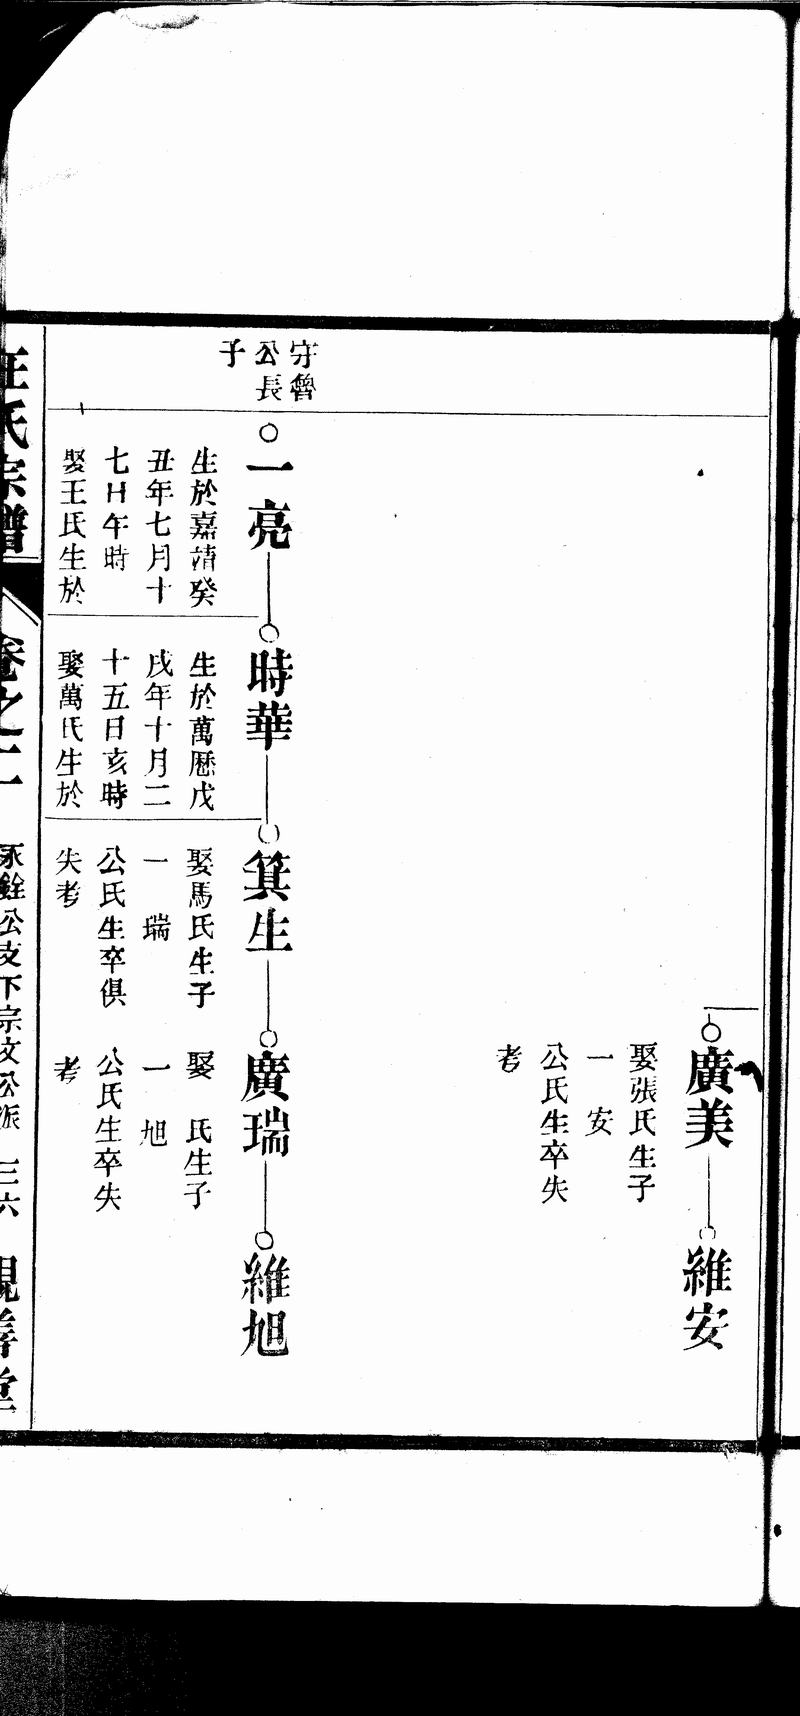 廣美
娶張氏生子
一安
公氏生卒失
考
維安
守魯
公長
子
一亮
生於嘉靖癸
丑年七月十
七日午時
娶王氏生於
時華
生於萬歷戊
戌年十月二
十五日亥時
娶萬氏生於
箕生
娶馬氏生子
一瑞
公氏生卒俱
失考
廣瑞
娶 氏生子
一旭
公氏生卒失
考
維旭
汪氏宗譜
卷之二
公支下宗文公派
三六
善堂